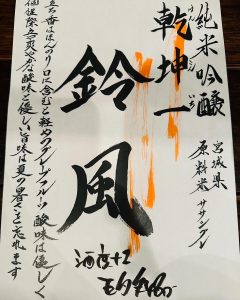 純米吟醸
宮城県
原料米 ササシグレ
乾坤一
けん いち
鈴風
酒度+2
立ち香はほんのり 口に含むと軽めのグレープフルーツ 酸味は優しく
個性際立つ爽やかな酸味と優しい旨味は夏の暑さを忘れます